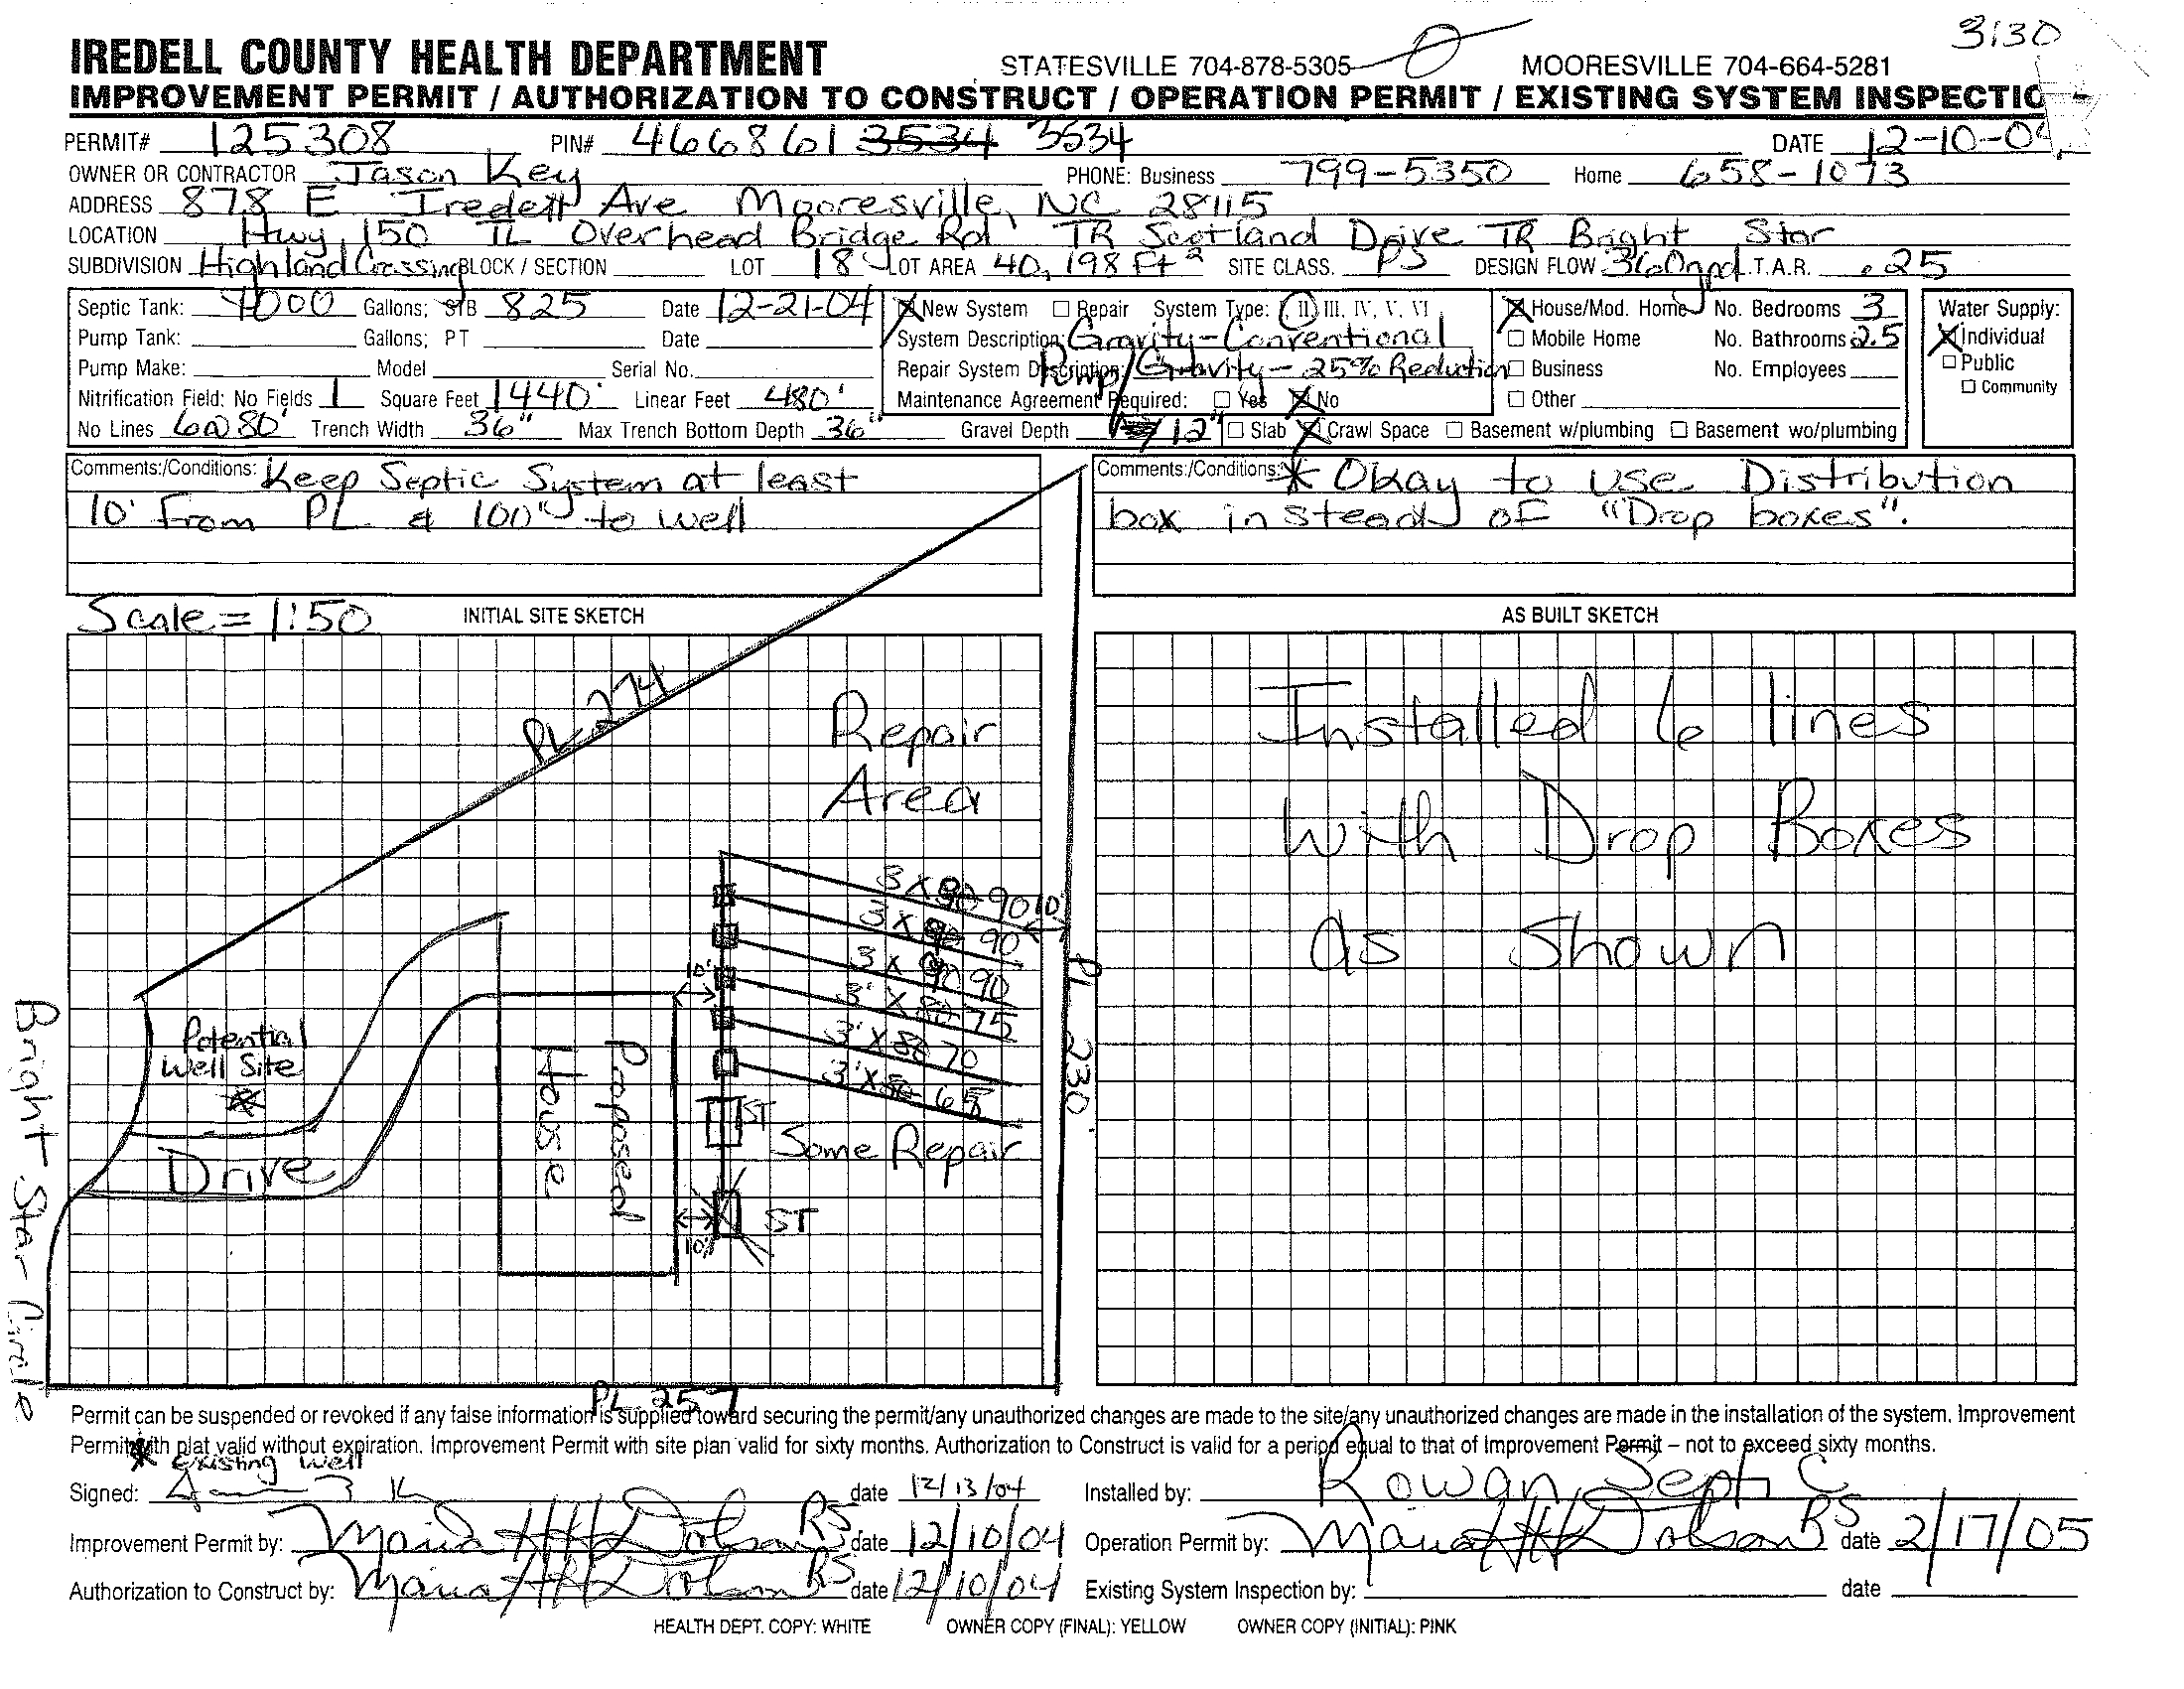 3:30
IREDELL COUNTY HEALTH DEPARTMENT STATESVILLE 704-878-5305 MOORESVILLE 704-664-5281
IMPROVEMENT PERMIT / AUTHORIZATION TO CONSTRUCT / OPERATION PERMIT / EXISTING SYSTEM INSPECTIO
PERMIT# 125308 PIN# 4668613534 3534 DATE 12-10-04
OWNER OR CONTRACTOR Jason Key PHONE: Business 799-5350 Home 658-1073
ADDRESS 878 E Iredell Ave Mooresville, NC 28115
LOCATION Hwy 150 TL Overhead Bridge Rd TR Scotland Drive TR Bright Star
SUBDIVISION Highland Crossing BLOCK / SECTION LOT 18 LOT AREA 40,198 Ft² SITE CLASS. PS DESIGN FLOW 360gpd L.T.A.R. .25
Septic Tank: 1000 Gallons; STB 825 Date 12-21-04 New System Repair System Type: II III, IV, V, VI House/Mod. Home No. Bedrooms 3 Water Supply:
Pump Tank: Gallons; PT Date System Description: Gravity-Conventional Mobile Home No. Bathrooms 2.5 Individual
Pump Make: Model Serial No. Repair System Description: Pump/Gravity-25% Reduction Business No. Employees Public
Nitrification Field: No Fields 1 Square Feet 1440' Linear Feet 480' Maintenance Agreement Required: Yes No Other Community
No Lines 6@80' Trench Width 36" Max Trench Bottom Depth 36" Gravel Depth 12" Slab Crawl Space Basement w/plumbing Basement wo/plumbing
Comments:/Conditions: Keep Septic System at least
10' From PL & 100' to well
Comments:/Conditions: * Okay to use Distribution
box instead of "Drop boxes".
Scale = 1:50 INITIAL SITE SKETCH
AS BUILT SKETCH
PL 274
Repair
Area
3 X 90
10'
3 X 90
3 X 90
10'
3' X 75
3' X 70
3' X 65
PL 230'
Potential
Well Site
Drive
Proposed
House
ST
Some Repair
ST
10'
Bright Star Circle
PL 257
Installed 6 lines
with Drop Boxes
as Shown
Permit can be suspended or revoked if any false information is supplied toward securing the permit/any unauthorized changes are made to the site/any unauthorized changes are made in the installation of the system. Improvement
Permit with plat valid without expiration. Improvement Permit with site plan valid for sixty months. Authorization to Construct is valid for a period equal to that of Improvement Permit – not to exceed sixty months.
* Existing Well
Signed: date 12/13/04 Installed by: Rowan Sept C
Improvement Permit by: Maria H Dotson RS date 12/10/04 Operation Permit by: Maria H Dotson RS date 2/17/05
Authorization to Construct by: Maria H Dotson RS date 12/10/04 Existing System Inspection by: date
HEALTH DEPT. COPY: WHITE OWNER COPY (FINAL): YELLOW OWNER COPY (INITIAL): PINK